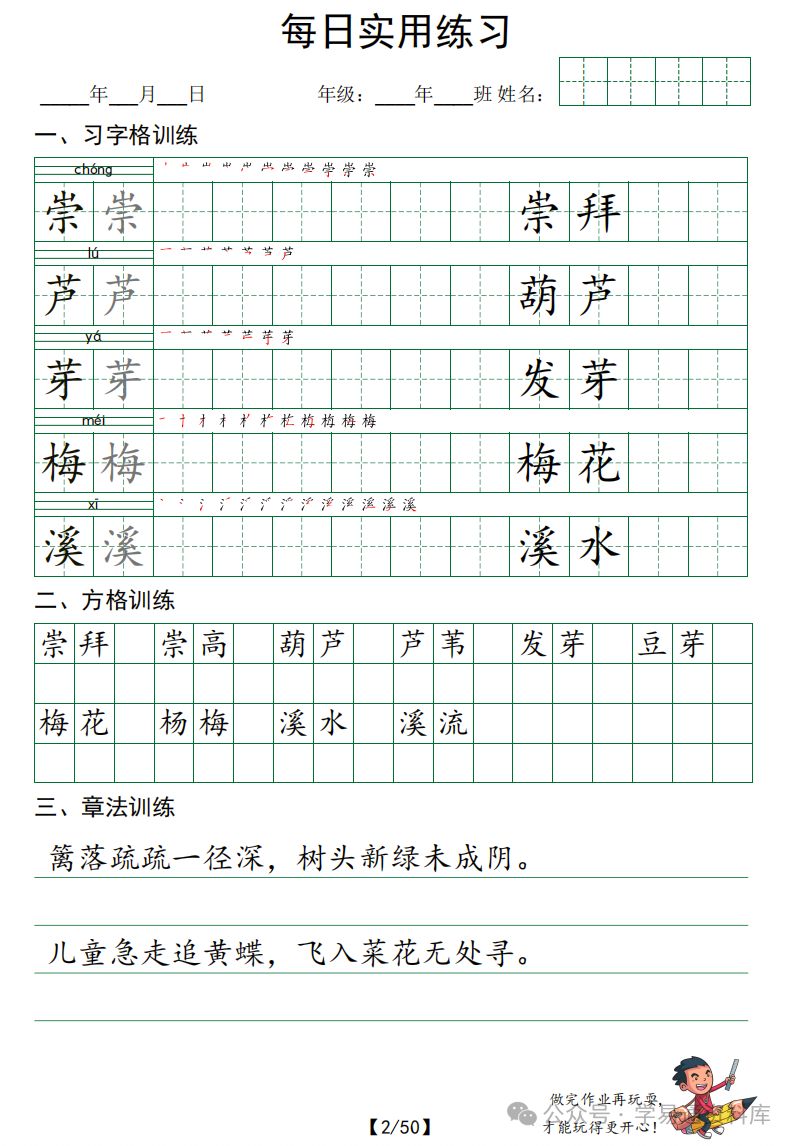 每日实用练习
_____年___月___日 年级：____年____班 姓名：
一、习字格训练
chóng
崇 崇 崇 拜
lú
芦 芦 葫 芦
yá
芽 芽 发 芽
méi
梅 梅 梅 花
xī
溪 溪 溪 水
二、方格训练
崇 拜 崇 高 葫 芦 芦 苇 发 芽 豆 芽
梅 花 杨 梅 溪 水 溪 流
三、章法训练
篱落疏疏一径深，树头新绿未成阴。
儿童急走追黄蝶，飞入菜花无处寻。
做完作业再玩耍，
才能玩得更开心！
公众号·学易
料库
【2/50】